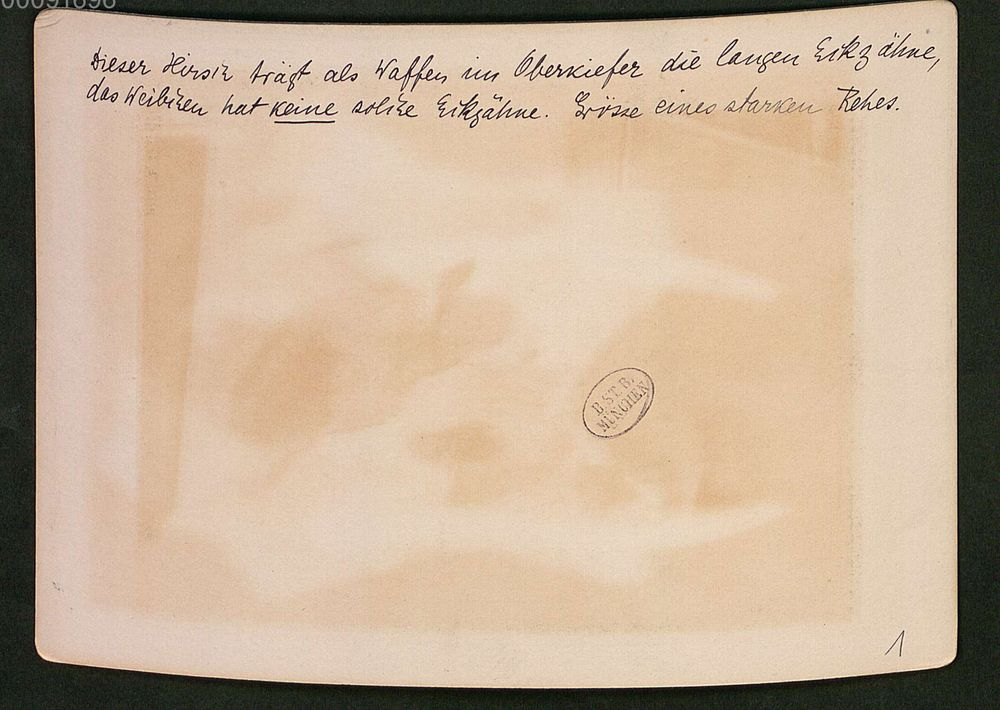 00091696
Dieser Hirsch trägt als Waffen im Oberkiefer die langen Eckzähne,
das Weibchen hat keine solche Eckzähne. Grösse eines starken Rehes.
B. ST. B.
MÜNCHEN
1